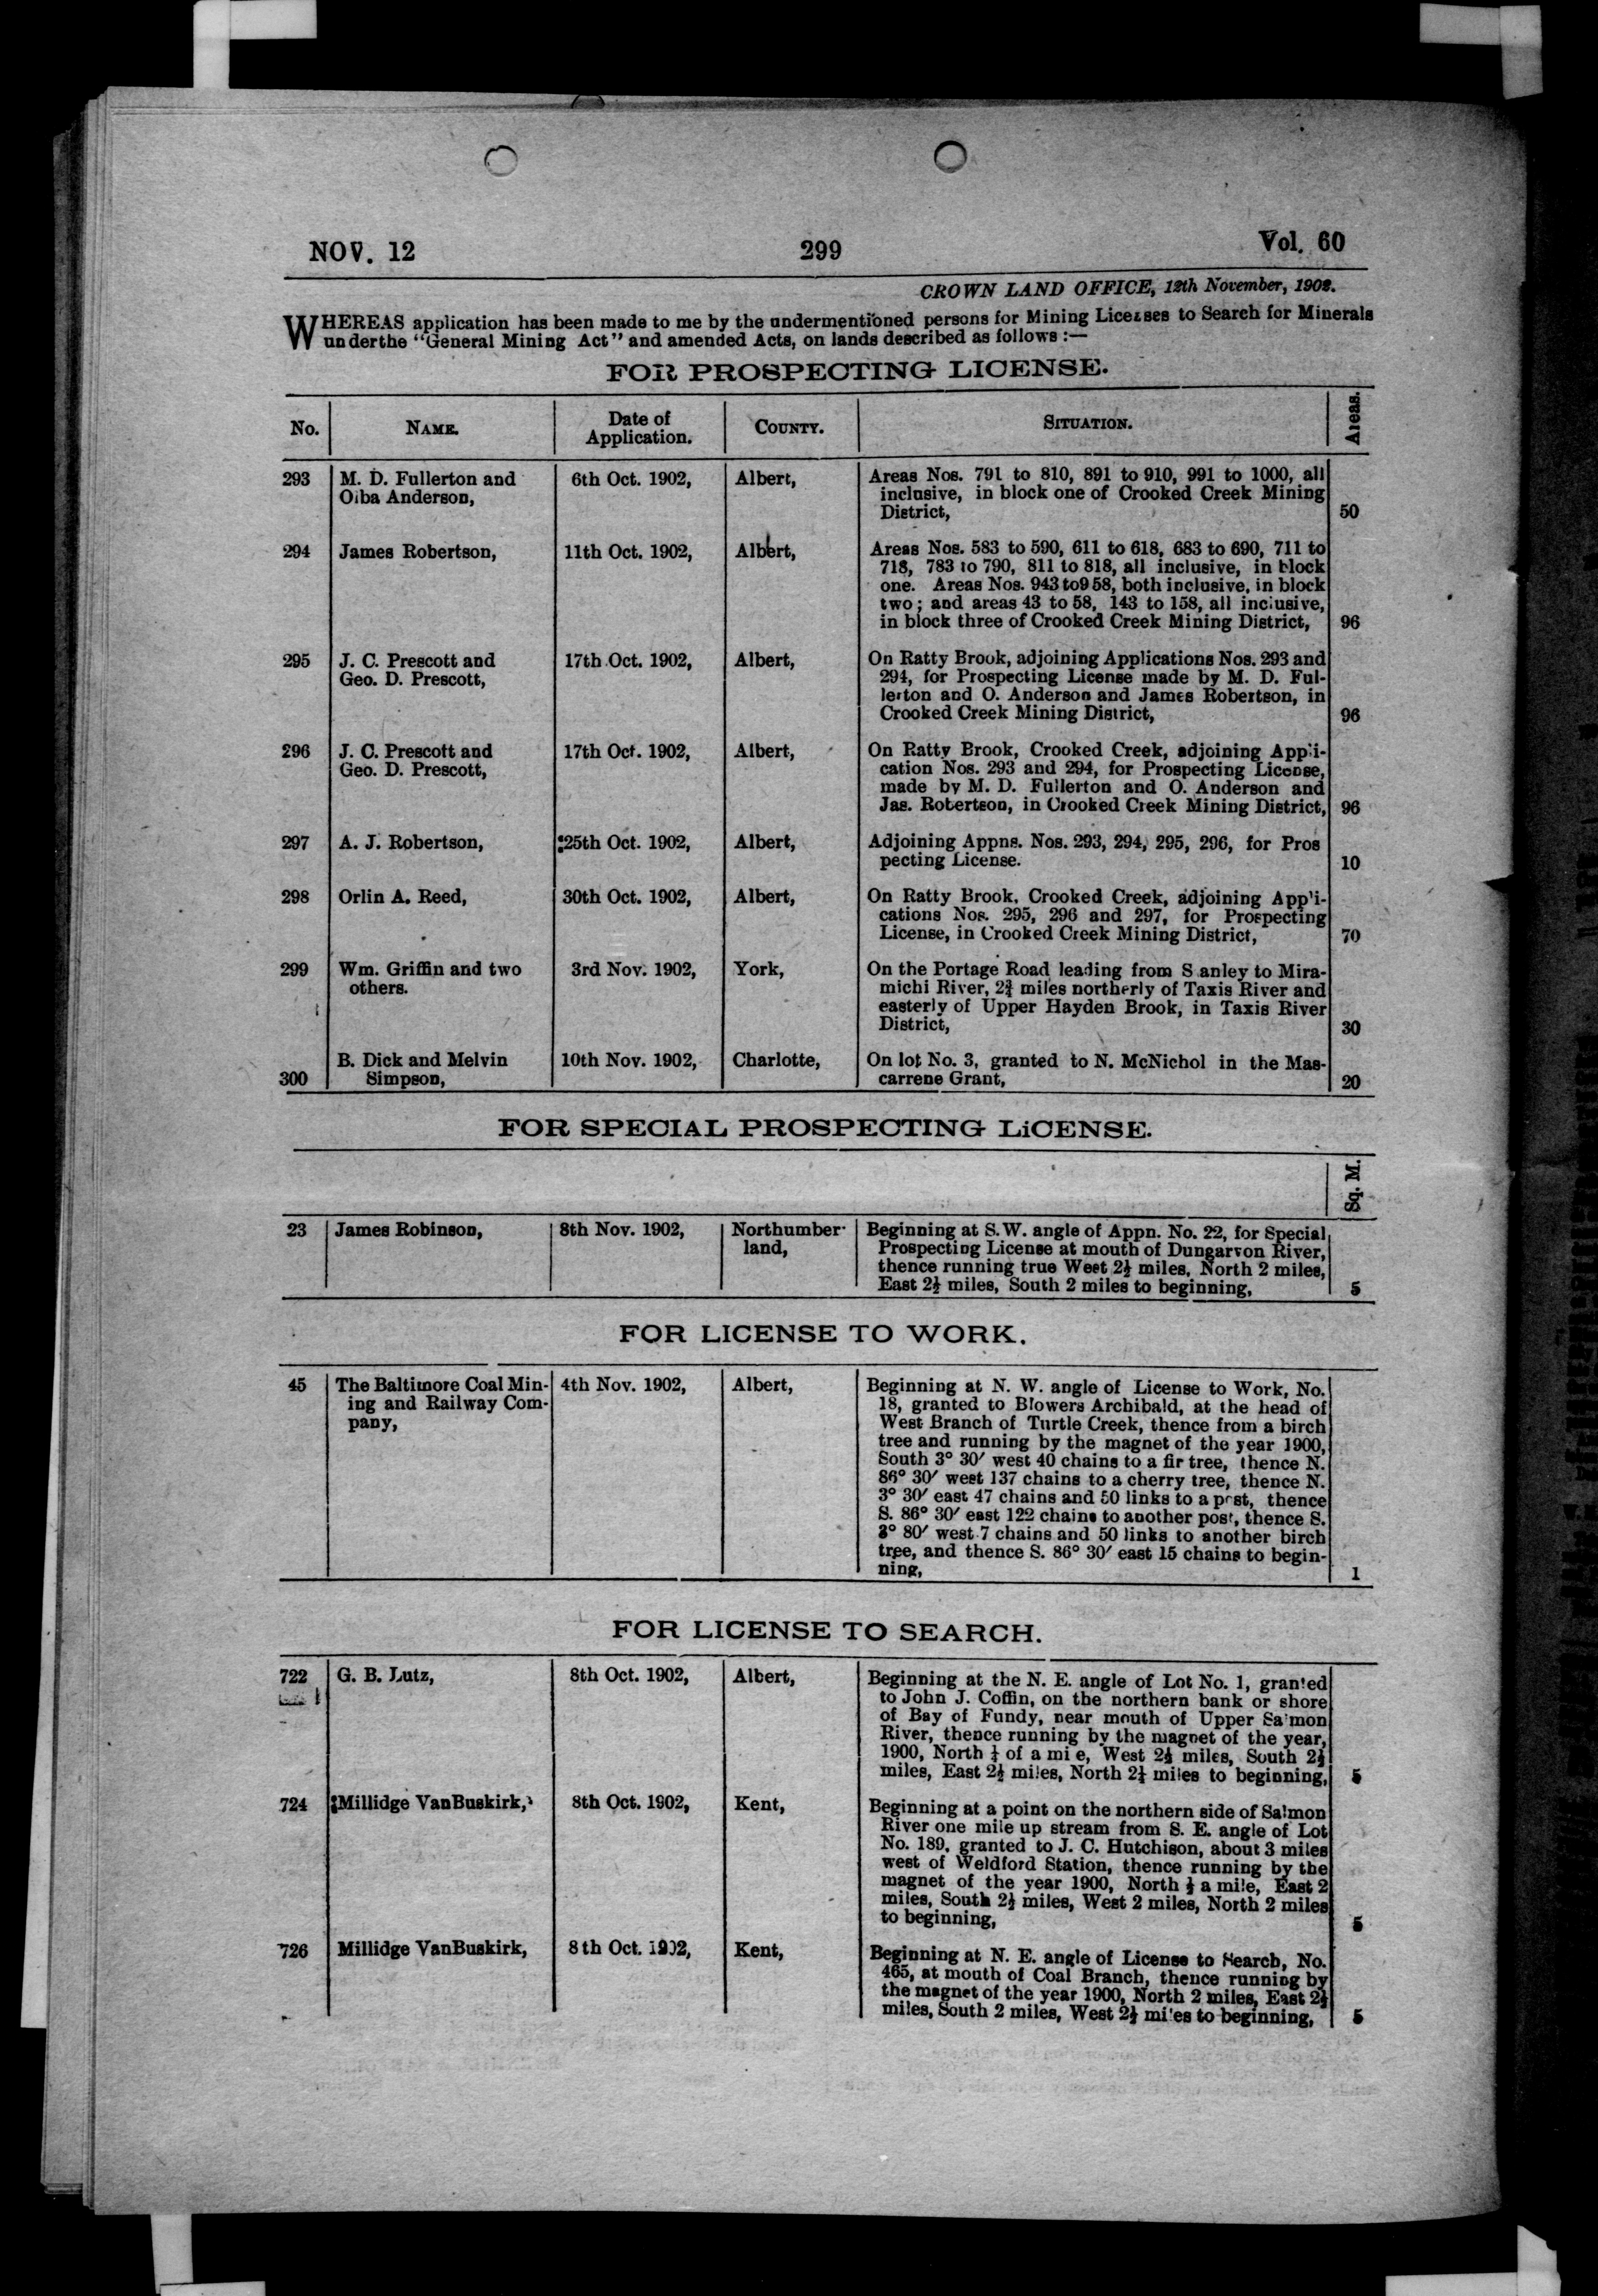 NOV. 12 299 Vol. 60
CROWN LAND OFFICE, 12th November, 1902.
WHEREAS application has been made to me by the undermentioned persons for Mining Licenses to Search for Minerals
underthe "General Mining Act" and amended Acts, on lands described as follows :—
FOR PROSPECTING LICENSE.
No. NAME. Date of Application. COUNTY. SITUATION. Areas.
293 M. D. Fullerton and 6th Oct. 1902, Albert, Areas Nos. 791 to 810, 891 to 910, 991 to 1000, all
Oiba Anderson, inclusive, in block one of Crooked Creek Mining
District, 50
294 James Robertson, 11th Oct. 1902, Albert, Areas Nos. 583 to 590, 611 to 618, 683 to 690, 711 to
718, 783 to 790, 811 to 818, all inclusive, in block
one. Areas Nos. 943 to958, both inclusive, in block
two; and areas 43 to 58, 143 to 158, all inclusive,
in block three of Crooked Creek Mining District, 96
295 J. C. Prescott and 17th Oct. 1902, Albert, On Ratty Brook, adjoining Applications Nos. 293 and
Geo. D. Prescott, 294, for Prospecting License made by M. D. Ful-
lerton and O. Anderson and James Robertson, in
Crooked Creek Mining District, 96
296 J. C. Prescott and 17th Oct. 1902, Albert, On Ratty Brook, Crooked Creek, adjoining Appli-
Geo. D. Prescott, cation Nos. 293 and 294, for Prospecting License,
made by M. D. Fullerton and O. Anderson and
Jas. Robertson, in Crooked Creek Mining District, 96
297 A. J. Robertson, 25th Oct. 1902, Albert, Adjoining Appns. Nos. 293, 294, 295, 296, for Pros
pecting License. 10
298 Orlin A. Reed, 30th Oct. 1902, Albert, On Ratty Brook, Crooked Creek, adjoining App'i-
cations Nos. 295, 296 and 297, for Prospecting
License, in Crooked Creek Mining District, 70
299 Wm. Griffin and two 3rd Nov. 1902, York, On the Portage Road leading from S anley to Mira-
others. michi River, 2¾ miles northerly of Taxis River and
easterly of Upper Hayden Brook, in Taxis River
District, 30
B. Dick and Melvin 10th Nov. 1902, Charlotte, On lot No. 3, granted to N. McNichol in the Mas-
300 Simpson, carrene Grant, 20
FOR SPECIAL PROSPECTING LiCENSE.
Sq. M.
23 James Robinson, 8th Nov. 1902, Northumber- Beginning at S. W. angle of Appn. No. 22, for Special
land, Prospecting License at mouth of Dungarvon River,
thence running true West 2½ miles, North 2 miles,
East 2½ miles, South 2 miles to beginning, 5
FOR LICENSE TO WORK.
45 The Baltimore Coal Min- 4th Nov. 1902, Albert, Beginning at N. W. angle of License to Work, No.
ing and Railway Com- 18, granted to Blowers Archibald, at the head of
pany, West Branch of Turtle Creek, thence from a birch
tree and running by the magnet of the year 1900,
South 3° 30′ west 40 chains to a fir tree, thence N.
86° 30′ west 137 chains to a cherry tree, thence N.
3° 30′ east 47 chains and 50 links to a post, thence
S. 86° 30′ east 122 chains to another post, thence S.
3° 80′ west 7 chains and 50 links to another birch
tree, and thence S. 86° 30′ east 15 chains to begin-
ning, 1
FOR LICENSE TO SEARCH.
722 G. B. Lutz, 8th Oct. 1902, Albert, Beginning at the N. E. angle of Lot No. 1, granted
to John J. Coffin, on the northern bank or shore
of Bay of Fundy, near mouth of Upper Sa'mon
River, thence running by the magnet of the year,
1900, North ¼ of a mi e, West 2½ miles, South 2½
miles, East 2½ miles, North 2¼ miles to beginning, 5
724 Millidge VanBuskirk, 8th Oct. 1902, Kent, Beginning at a point on the northern side of Salmon
River one mile up stream from S. E. angle of Lot
No. 189, granted to J. C. Hutchison, about 3 miles
west of Weldford Station, thence running by the
magnet of the year 1900, North ½ a mile, East 2
miles, South 2½ miles, West 2 miles, North 2 miles
to beginning, 5
726 Millidge VanBuskirk, 8th Oct. 1902, Kent, Beginning at N. E. angle of License to Search, No.
465, at mouth of Coal Branch, thence running by
the magnet of the year 1900, North 2 miles, East 2½
miles, South 2 miles, West 2½ mi'es to beginning, 5